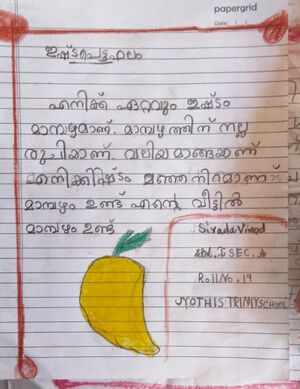 papergrid
Date: / /
ഇഷ്ടപ്പെട്ടഫലം
എനിക്ക് ഏറ്റവും ഇഷ്ടം
മാമ്പഴമാണ്. മാമ്പഴത്തിന് നല്ല
രുചിയാണ്. വലിയമാങ്ങയാണ്
എനിക്കിഷ്ടം മഞ്ഞ നിറമാണ്
മാമ്പഴം ഉണ്ട് എന്റെ വീട്ടിൽ
മാമ്പഴം ഉണ്ട്
Sivada Vinod
SEC. A
Roll No. 19
JYOTHIS TRINITY SCHOOL